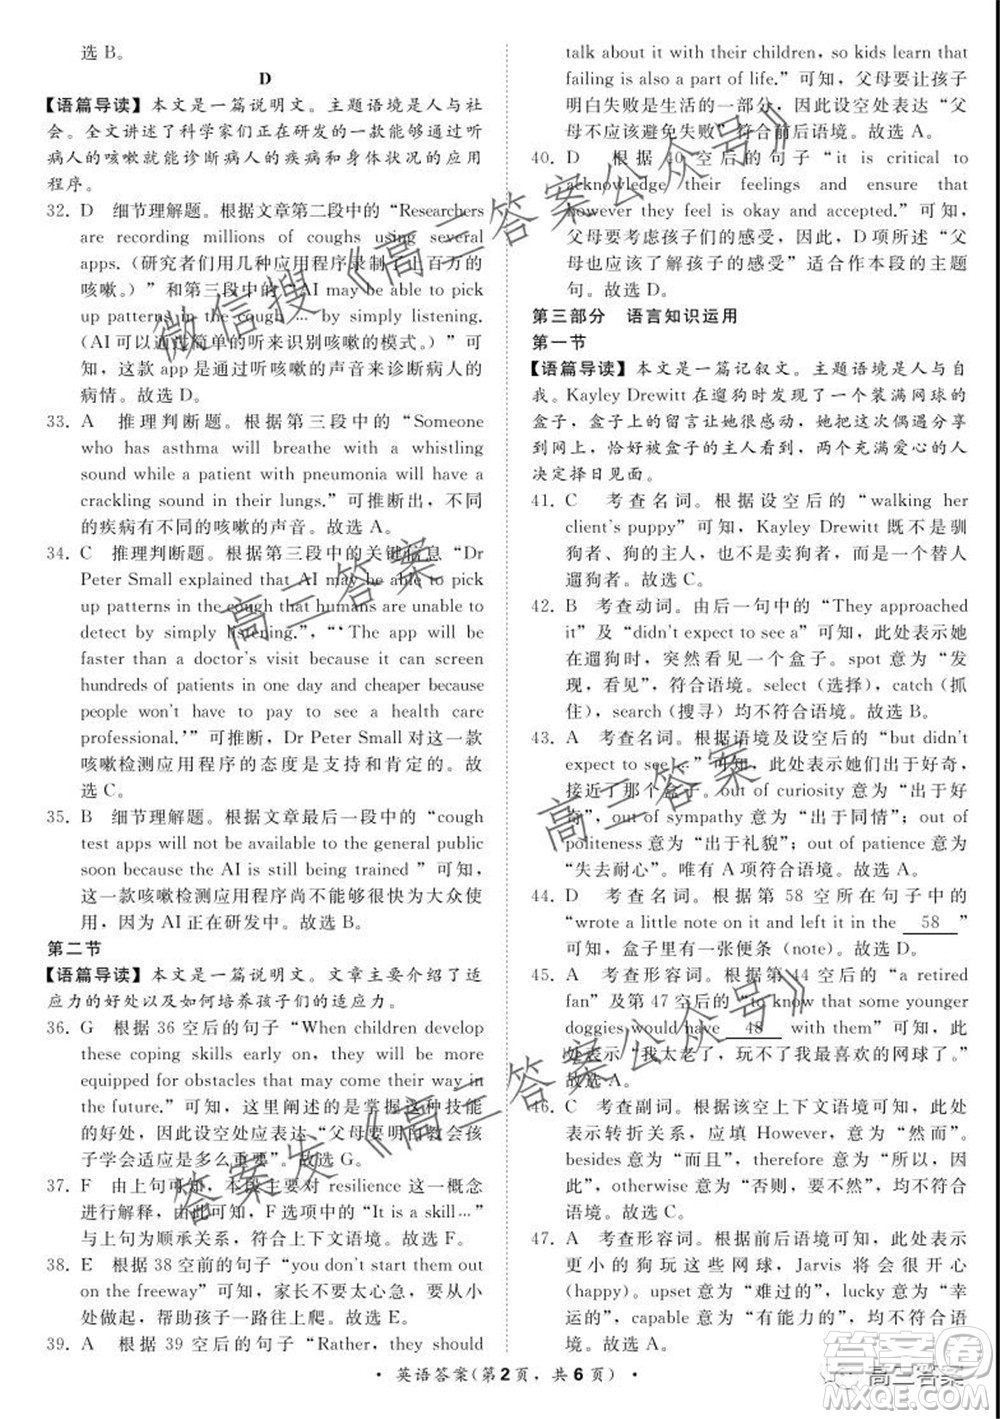 选 B。
D
【语篇导读】本文是一篇说明文。主题语境是人与社
会。全文讲述了科学家们正在研发的一款能通过听
病人的咳嗽就能诊断病人的疾病和身体状况的应用
程序。
32. D 细节理解题。根据文章第二段中的“Researchers
are recording millions of coughs using several
apps.(研究者们用几种应用程序录制了上百万的
咳嗽。)”和第三段中的“AI may be able to pick
up patterns in the cough … by simply listening.
(AI 可以通过简单的听来识别咳嗽的模式。)”可
知，这款 app是运用咳嗽的声音来诊断病人的
病情。故选 D。
33. A 推理判断题。根据第三段中的“Someone
who has asthma will breathe with a whistling
sound while a patient with pneumonia will have a
crackling sound in their lungs.”可推断出，不同
的疾病有不同的咳嗽的声音。故选 A。
34. C 推理判断题。根据第三段中的关键信息“Dr
Peter Small explained that AI may be able to pick
up patterns in the cough that humans are unable to
detect by simply listening.”，“‘The app will be
faster than a doctor's visit because it can screen
hundreds of patients in one day and cheaper because
people won't have to pay to see a health care
professional.'”可推断，Dr Peter Small 对这一款
咳嗽检测应用程序的态度是支持和肯定的。故
选 C。
35. B 细节理解题。根据文章最后一段中的“cough
test apps will not be available to the general public
soon as the AI is still being trained ”可知，
这一款咳嗽检测应用程序尚不能供大众使
用，因为 AI正在研发中。故选 B。
第二节
【语篇导读】本文是一篇说明文。文章主要介绍了适
应力的好处以及如何培养孩子们的适应力。
36. G 根据 36 空后的句子“When children develop
these coping skills early on, they will be more
equipped for obstacles that may come their way in
the future.”可知，这里阐述的是掌握这种技能
的好处，因此设空处应表达“父母要明白教会孩
子学会适应是多么重要”。故选 G。
37. F 由上句可知，本段主要对 resilience 这一概念
进行解释，由此可知，F 选项中的“It is a skill…”
与上句为顺承关系，符合上下文语境。故选 F。
38. E 根据 38 空前的句子“you don't start them out
on the freeway”可知，家长不要太心急，要从小
处做起，帮助孩子一路往上爬。故选 E。
39. A 根据 39 空后的句子“Rather, they should
talk about it with their children, so kids learn that
failing is also a part of life.”可知，父母要让孩子
明白失败是生活的一部分，因此设空处表达“父
母不应该避免失败”符合前后语境。故选 A。
40. D 根据 40 空后的句子“it is critical to
acknowledge their feelings and ensure that
however they feel is okay and accepted.”可知，
父母要考虑孩子们的感受，所以，D 项所述“父
母也应该了解孩子的感受”适合作本段的主题
句。故选 D。
第三部分 语言知识运用
第一节
【语篇导读】本文是一篇记叙文。主题语境是人与自
我。Kayley Drewitt 在遛狗时发现了一个装满网球的
盒子，盒子上的留言让她很感兴趣，她把这个故事分享
到网上，恰好被盒子的主人看到，两个充满爱心的人
决定择日见面。
41. C 考查名词。根据设空后的“walking her
client's puppy”可知，Kayley Drewitt 既不是驯
狗者、狗的主人，也不是卖狗者，而是一个替人
遛狗者。故选 C。
42. B 考查动词。由后一句中的“They approached
it”及“didn't expect to see a”可知，此处表示她
在遛狗时，突然看见一个盒子。spot 意为“发
现，看见”，符合语境。select (选择)，catch (抓
住)，search (搜寻) 均不符合语境。故选 B。
43. A 考查名词。根据语境及设空后的“but didn't
expect to see …”可知，此处表示她们出于好奇，
接近了那个盒子。out of curiosity 意为“出于好
奇”，out of sympathy 意为“出于同情”，out of
politeness 意为“出于礼貌”，out of patience 意为
“失去耐心”。唯有 A 项符合语境。故选 A。
44. D 考查名词。根据第 58 空所在句子中的
“wrote a little note on it and left it in the 58 ”
可知，盒子里有一张便条 (note)。故选 D。
45. A 考查形容词。根据第 44 空后的“a retired
fan”及第 47 空后的“to know that some younger
doggies would have 48 with them”可知，
此处表示“我太老了，玩不了我最喜欢的网球了。”
故选 A。
46. C 考查副词。根据该空上下文语境可知，此处
表示转折关系，应填 However，意为“然而”。
besides 意为“而且”，therefore 意为“所以，因
此”，otherwise 意为“否则，要不然”，均不符合
语境。故选 C。
47. D 考查形容词。根据前后语境可知，此处表示
更小的狗玩这些网球，Jarvis 将会很开心
(happy)。upset 意为“难过的”，lucky 意为“幸
运的”，capable 意为“有能力的”，均不符合语
境。故选 D。
• 英语答案(第2页，共6页) •
微信搜《高三答案公众号》
高三答案
高三答案
答案发《高三答案公众号》
高三答案